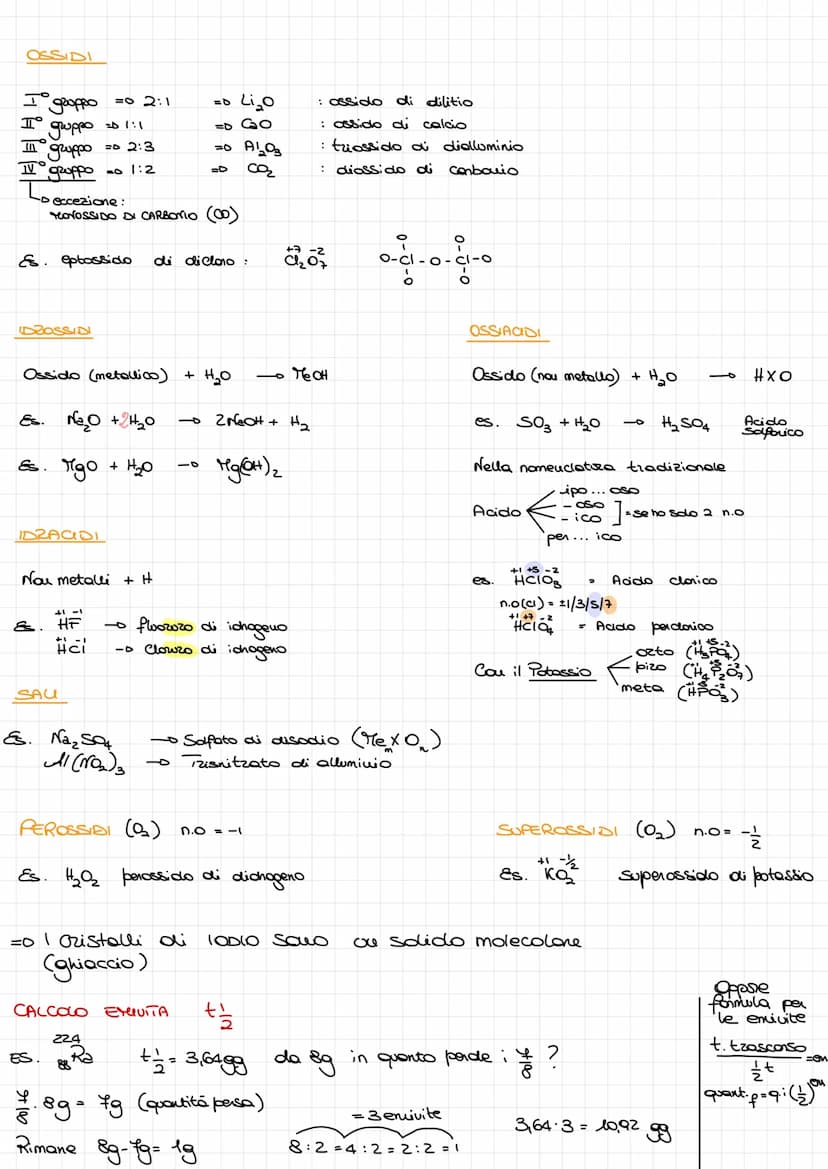 OSSIDI
I° gruppo => 2:1 => Li₂O : ossido di dilitio
II° gruppo => 1:1 => CaO : ossido di calcio
III° gruppo => 2:3 => Al₂O₃ : triossido di dialluminio
IV° gruppo => 1:2 => CO₂ : diossido di carbonio
eccezione:
MONOSSIDO DI CARBONIO (CO)
Es. eptossido di dicloro : +7 -2 Cl₂O₇
O O
O-Cl-O-Cl-O
O O
IDROSSIDI
Ossido (metallico) + H₂O → MeOH
Es. Na₂O + 2H₂O → 2NaOH + H₂
Es. MgO + H₂O → Mg(OH)₂
IDRACIDI
Non metalli + H
Es. +1 -1 HF → fluoruro di idrogeno
+1 -1 HCl → Cloruro di idrogeno
SALI
Es. Na₂SO₄ → Solfato di disodio (MeₘXOₙ)
Al(NO₂)₃ → Trisnitrato di alluminio
OSSIACIDI
Ossido (non metallo) + H₂O → HXO
es. SO₃ + H₂O → H₂SO₄ Acido Solforico
Nella nomenclatura tradizionale
ipo... oso
Acido - oso
- ico ] = se ho solo 2 n.o
per... ico
es. +1 +5 -2 HClO₃ = Acido clorico
n.o(Cl) = ±1/3/5/7
+1 +7 -2 HClO₄ = Acido perclorico
orto (+1 +5 -2 H₃PO₄)
Con il Potassio piro (+1 +5 -2 H₄P₂O₇)
meta (+1 +5 -2 HPO₃)
PEROSSIDI (O₂) n.o = -1
Es. H₂O₂ perossido di diidrogeno
SUPEROSSIDI (O₂) n.o = -1/2
Es. +1 -1/2 KO₂ superossido di potassio
=> I cristalli di IODIO sono un solido molecolare
(ghiaccio)
CALCOLO EMIVITA t½
ES. 224 88 Ra t½ = 3,64gg da 8g in quanto perde i 7/8 ?
7/8 · 8g = 7g (quantità persa)
Rimane 8g-7g= 1g
= 3 emivite
8:2 = 4:2 = 2:2 = 1
3,64·3 = 10,92 gg
Oppure
formula per
le emivite
t. trascorso
½t = en
quant.f = q.i (½)^en